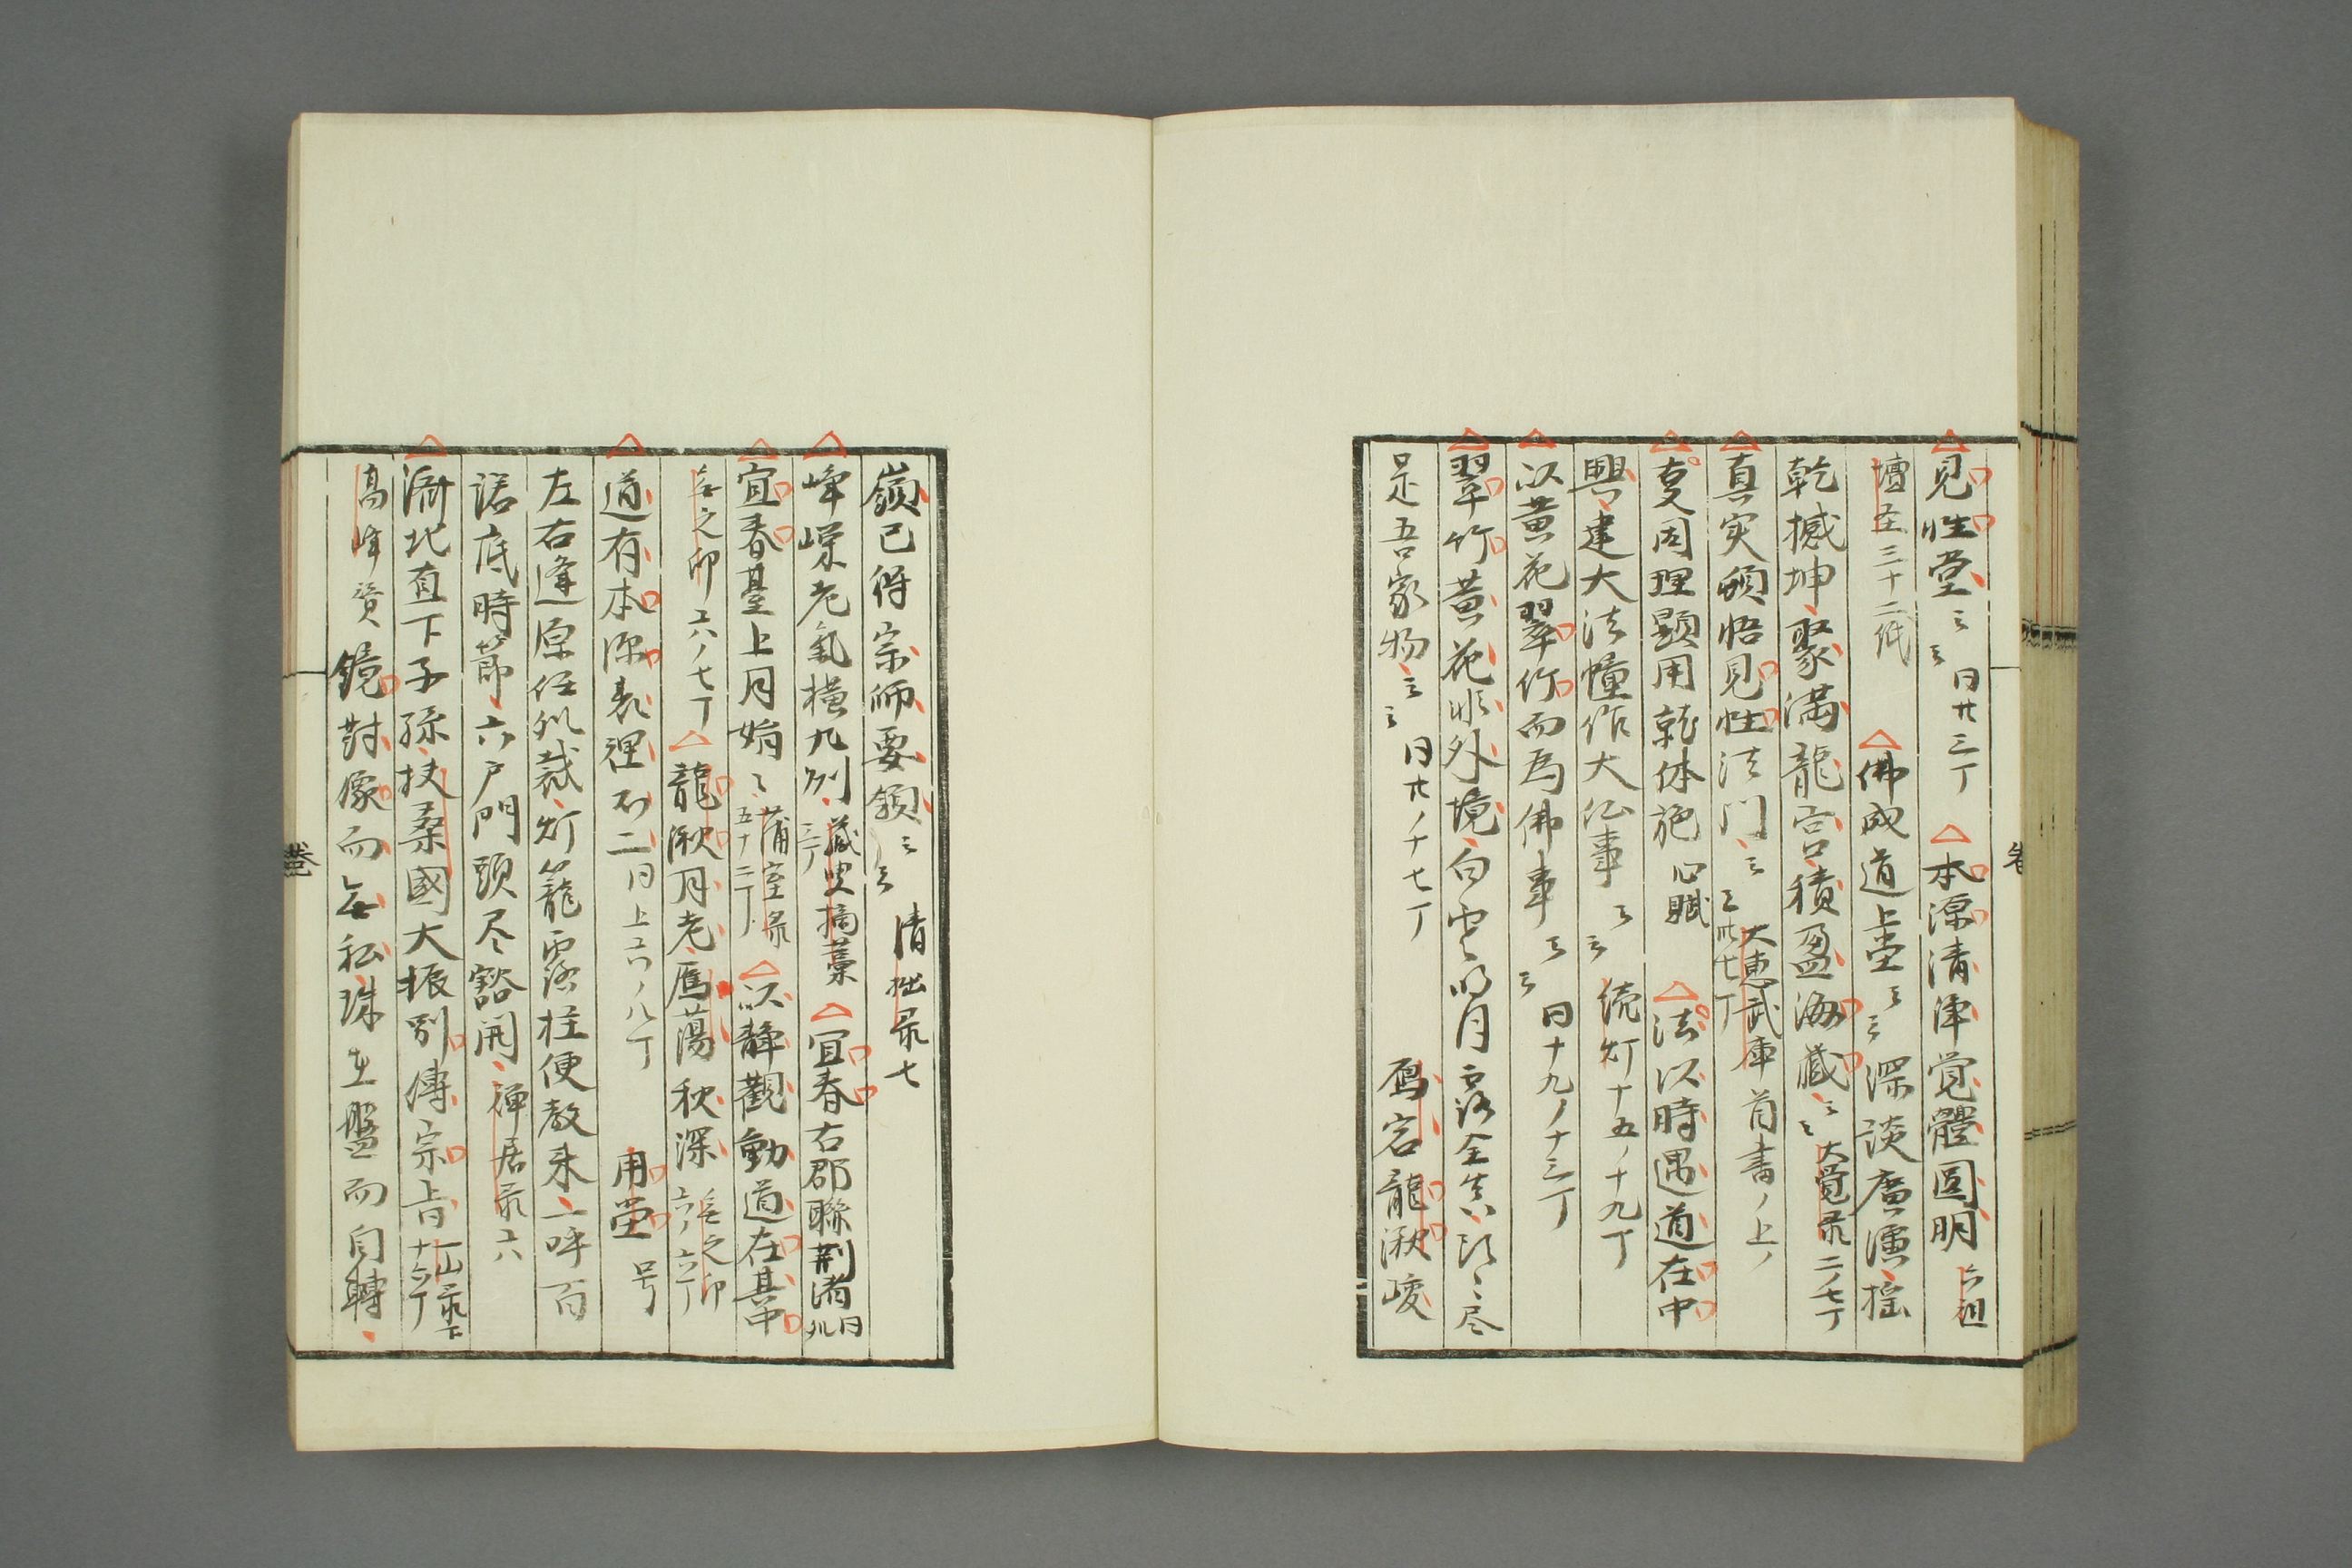 見性堂〻〻 同廿三丁 本源清浄覚體圓明 六祖
壇至三十二紙 佛成道上堂〻〻深談廣演揺
乾撼坤聚満龍宮積盈海蔵〻〻 大覚录二ノ七丁
真实頓悟見性法门〻〻 大恵武庫首書ノ上ノ卅七丁
夏周理顕用乾体施 心賦 法以時遇道在中
興建大法幢作大仏事〻〻 続灯十五ノ十九丁
以黄花翠竹而為佛事〻〻 同十九ノ十三丁
翠竹黄花非外境白雲明月露全真頭〻尽
是吾家物〻〻 同廿ノ十七丁 雁宕龍湫峻
嶺已得宗師要領〻〻 清拙录七
峰嶸老氣横九州 蔵叟摘藁三丁 宜春右郡聯荆渚 同九
宜春臺上月娟〻 蒲室录五十二丁 以静觀動道在其中
无之印 六ノ七丁 龍湫月老雁蕩秋深 无之印六ノ六丁
道有本源表裡不二 同上六ノ八丁 用堂 号
左右逢原任処裁灯籠露柱便教来一呼百
諾底時節六戸門頭尽豁開 禅居录六
済北直下子孫扶桑國大振別傳宗上旨 一山录下十六丁
高峰賛 鏡對像而無私珠在盤而自轉